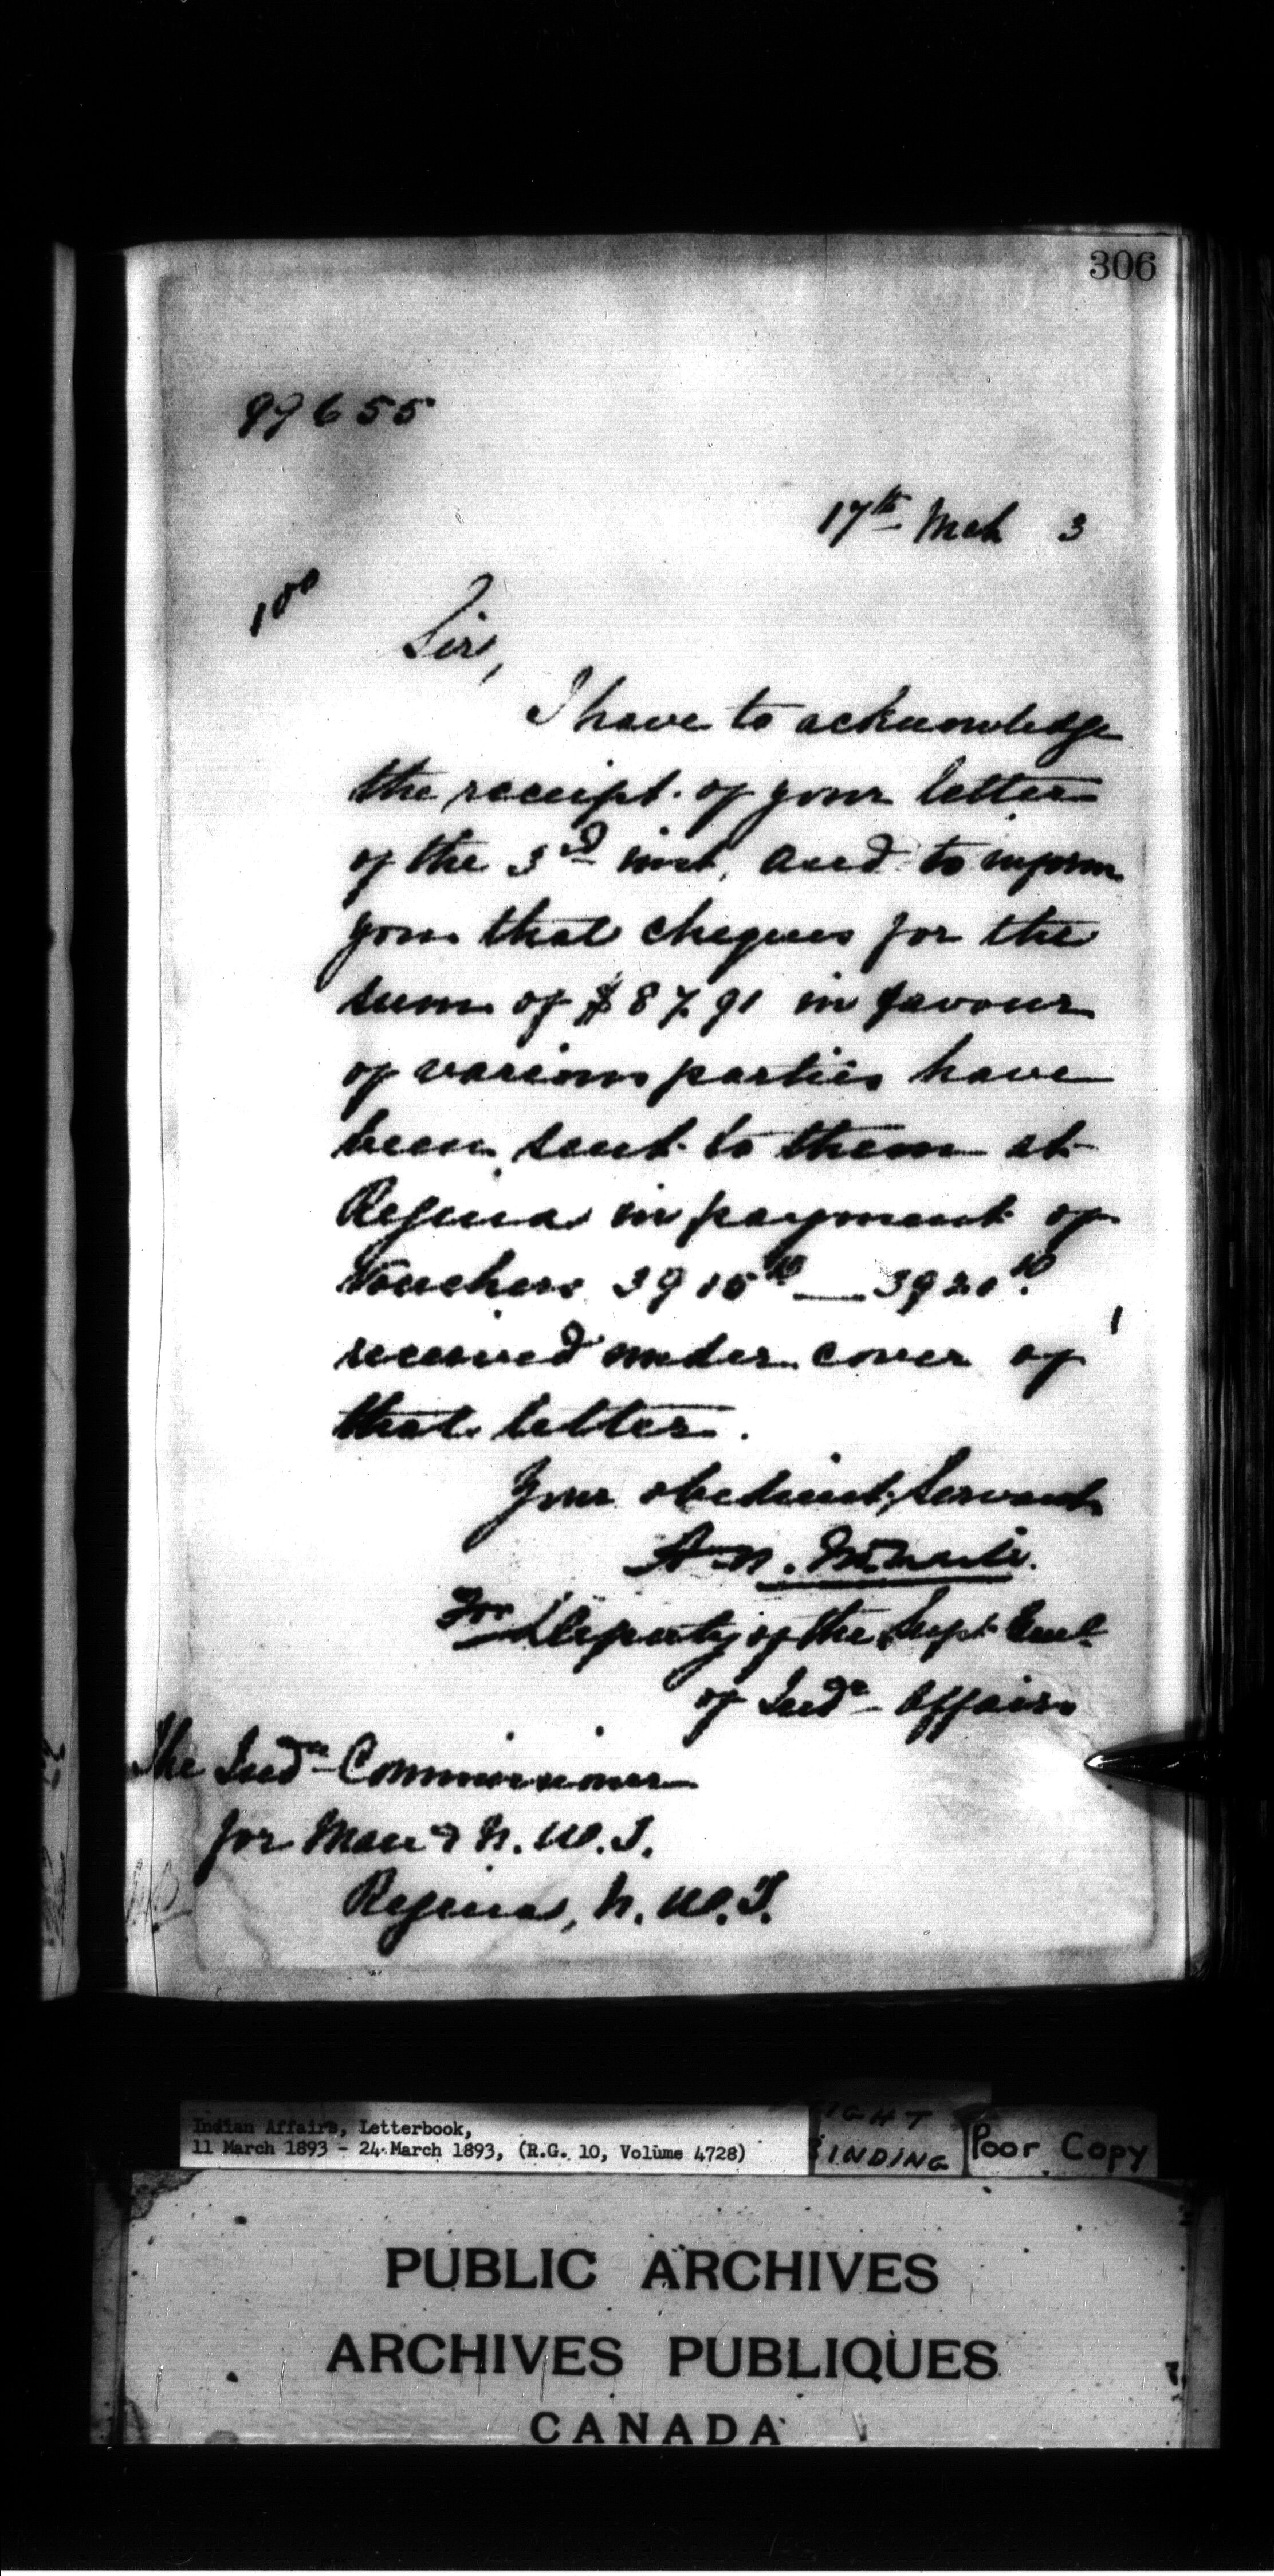 306
99655
17th Mch 3
100
Sir,
I have to acknowledge
the receipt of your letter
of the 3rd inst, and to inform
you that cheques for the
sum of $87.91 in favour
of various parties have
been sent to them at
Regina in payment of
Vouchers 3915 — 3920
received under cover of
that letter.
Your obedient Servant
For Deputy of the Supt Genl
of Indn Affairs
The Indn Commissioner
for Man & N. W. T.
Regina, N. W. T.
Indian Affairs, Letterbook,
11 March 1893 - 24 March 1893, (R.G. 10, Volume 4728)
IGHT
BINDING
Poor Copy
PUBLIC ARCHIVES
ARCHIVES PUBLIQUES
CANADA